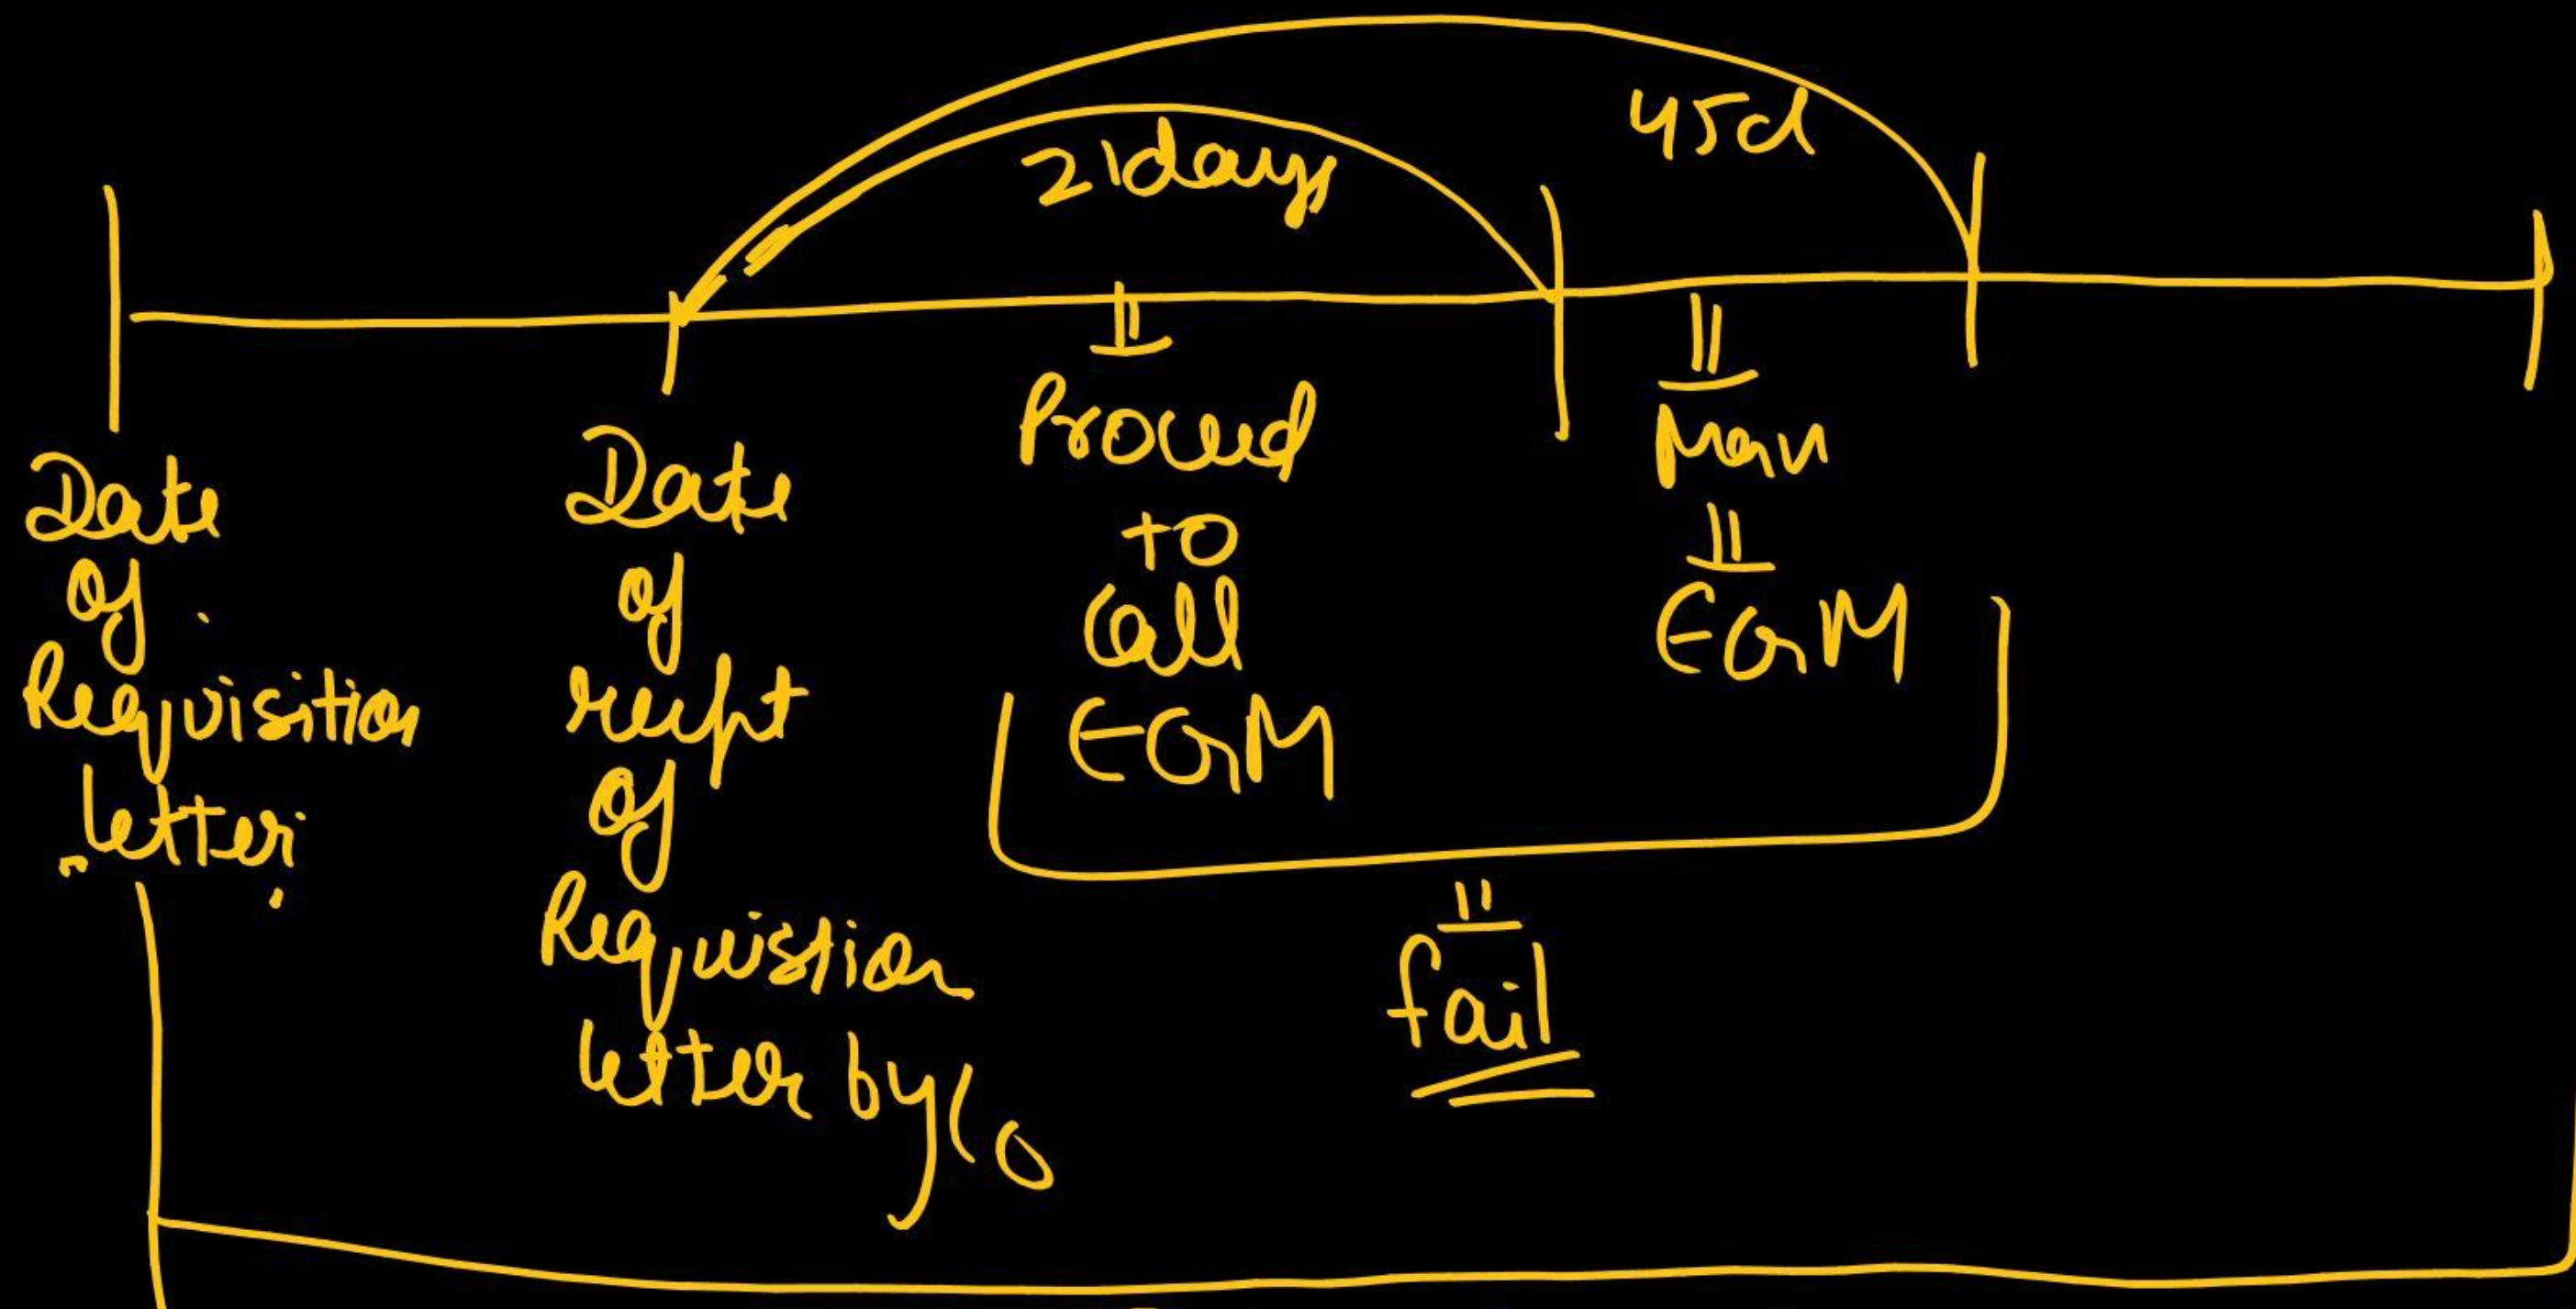 45d
21days
Date
of
Requisition
letter
Date
of
reciept
of
Requistion
letter by Co
Proceed
to
Call
EGM
EGM
fail